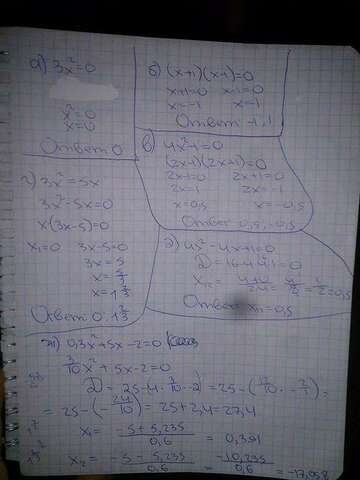 а) 3x²=0
x²=0
x=0
Ответ 0
б) (x+1)(x-1)=0
x+1=0 x-1=0
x=-1 x=1
Ответ -1,1
в) 4x²-1=0
(2x-1)(2x+1)=0
2x-1=0 2x+1=0
2x=1 2x=-1
x=0,5 x=-0,5
Ответ 0,5, -0,5
г) 3x²=5x
3x²-5x=0
x(3x-5)=0
x₁=0 3x-5=0
3x=5
x=5/3
x=1 2/3
Ответ 0, 1 2/3
д) 4x²-4x+1=0
D=16-4·4·1=0
=0,5
Ответ =0,5
ж) 0,3x²+5x-2=0
3/10x²+5x-2=0
D=25-4·3/10·-2=25-(12/10·-2/1)=
=25-(-24/10)=25+2,4=27,4
x₁=(-5+5,235)/0,6=0,391
x₂=(-5-5,235)/0,6=-10,235/0,6=-17,058